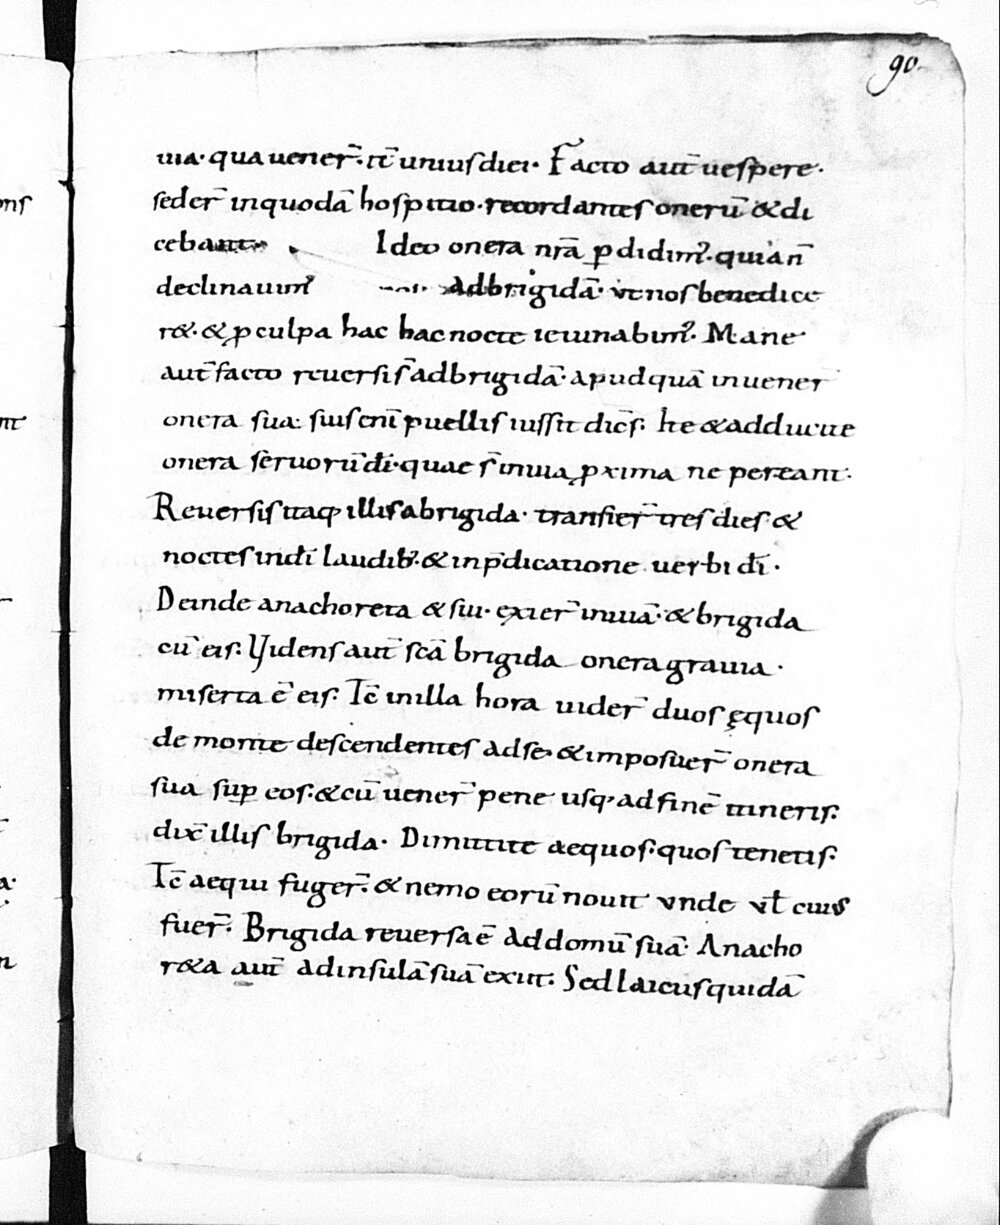 90
uia· qua uener̄· it̄ unius diei· Facto aut̄ uespere·
seder̄ in quodā hospitio· recordantes onerū & di
cebant Ideo onera nr̄a ꝑdidim᷒· quia n̄
declinauim᷒ ad brigidā· ut nos benedice
r&· & ꝓ culpa hac hac nocte ieiunabim᷒· Mane
aut̄ facto reuersi s̄ ad brigidā· apud quā inuener̄
onera sua· suis eni̅ puellis iussit dic̄s· Ite & adducite
onera seruorū dī· quae s̄ in uia ꝓxima ne pereant·
Reuersis itaq; illis a brigida· transier̄ tres dies &
noctes in dī laudib;· & in p̄dicatione uerbi dī·
Deinde anachoreta & sui· exier̄ in uiā· & brigida
cū eis· Videns aut̄ sc̄a brigida onera grauia·
miserta ē eis· Tc̄ in illa hora uider̄ duos ęquos
de monte descendentes ad se· & imposuer̄ onera
sua sup̱ eos· & cū uener̄ pene usq; ad finē itineris·
dix̄ illis brigida· Dimittite aequos· quos tenetis·
Tc̄ aequi fuger̄· & nemo eorū nouit unde ut̄ cuius
fuer̄· Brigida reuersa ē ad domū suā· Anacho
r&a aut̄ ad insulā suā exiit· Sed laicus quidā